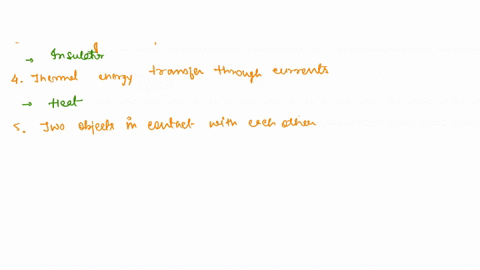 → Insulator
4. Thermal energy transfer through currents
→ Heat
5. Two objects in contact with each other